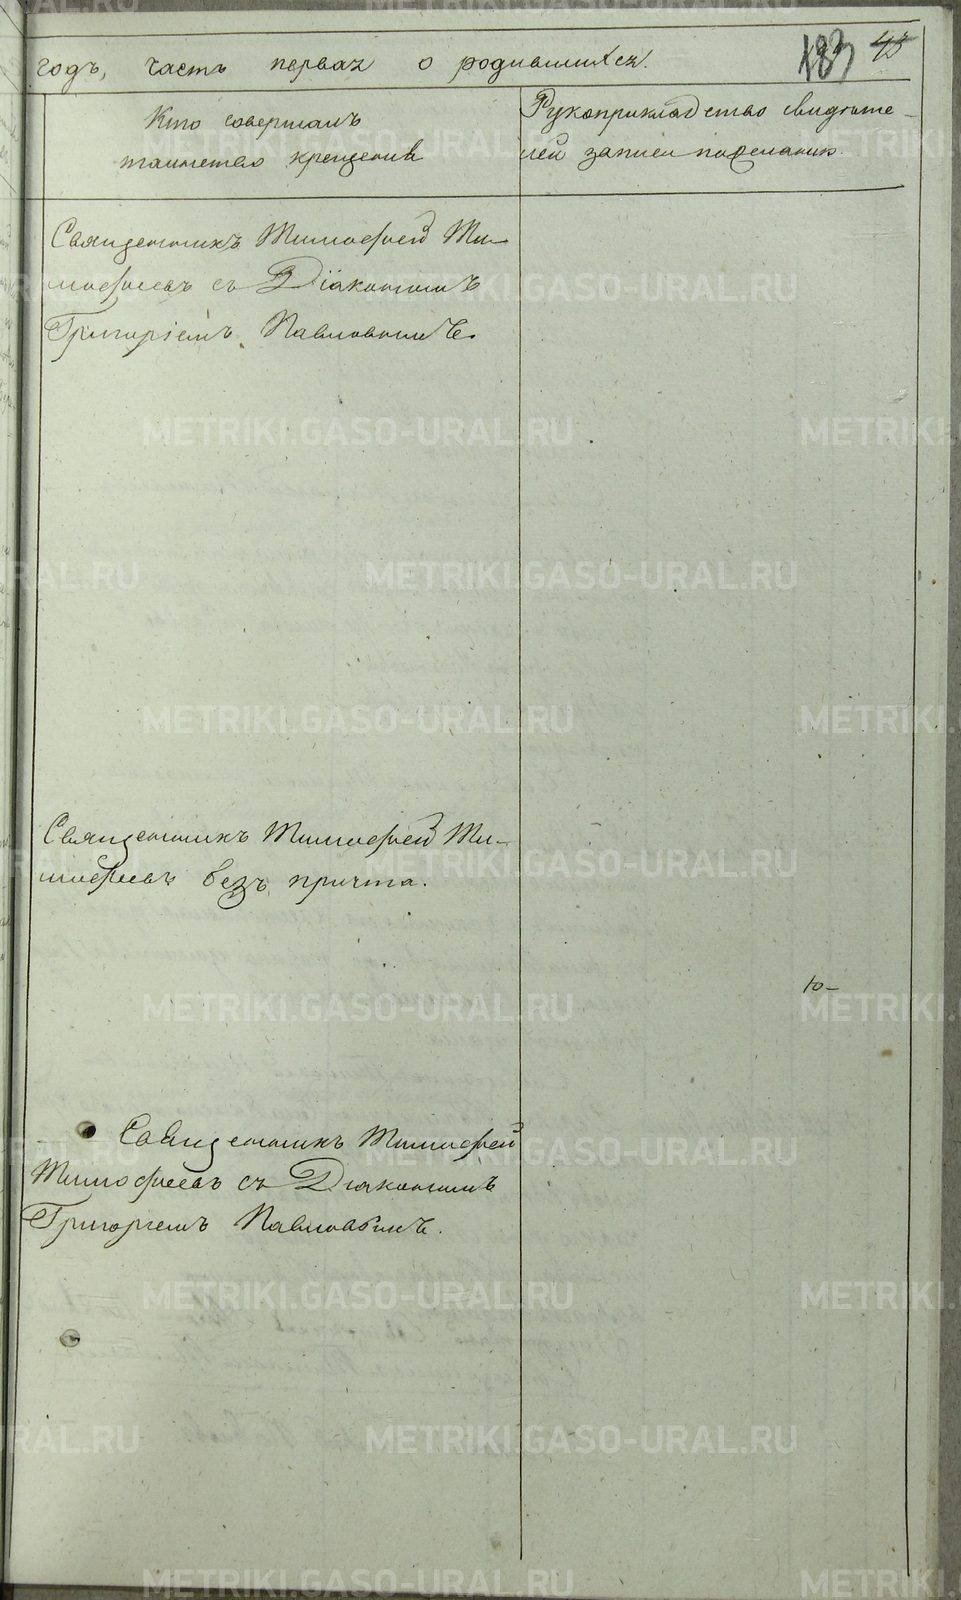 годъ, часть первая о родившихся.
183 45
Кто совершалъ
таинство крещенія
Рукоприкладство свидѣте-
лей записи по желанию.
Священникъ Тимофей Ти-
мофеевъ съ Діакономъ
Григоріемъ Павловымъ.
Священникъ Тимофей Ти-
мофеевъ безъ причта.
Священникъ Тимофей
Тимофеевъ съ Діакономъ
Григоріемъ Павловымъ.
METRIKI.GASO-URAL.RU